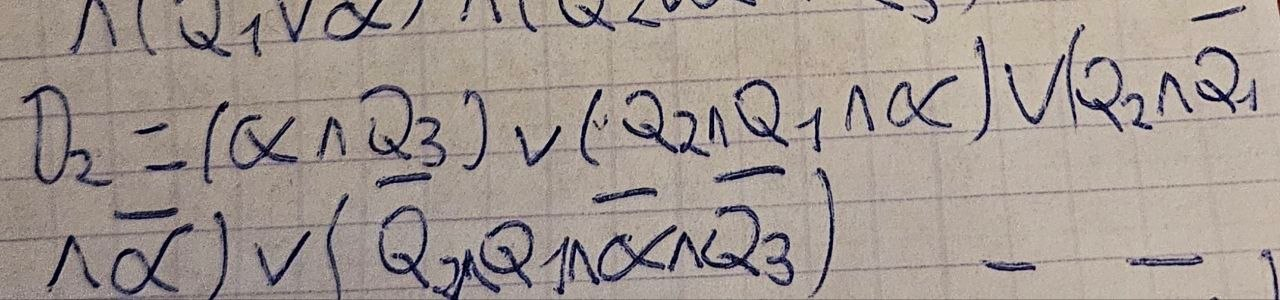 ∧(Q₁∨α) ∧(Q₂
D₂ = (α∧Q₃) ∨ (Q₂∧Q₁∧α) ∨ (Q₂∧Q̅₁
∧α̅) ∨ (Q̅₂∧Q₁∧α̅∧Q̅₃)